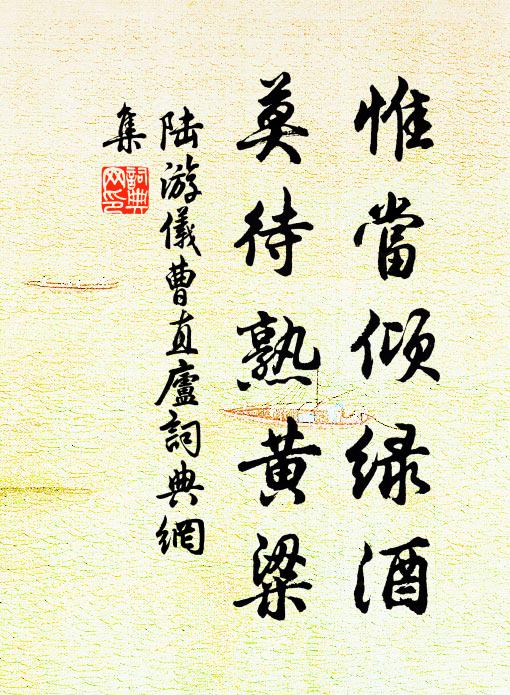 惟當傾綠酒
莫待熟黄粱
陸游儀曹直廬詞典網
集
詞典
網印